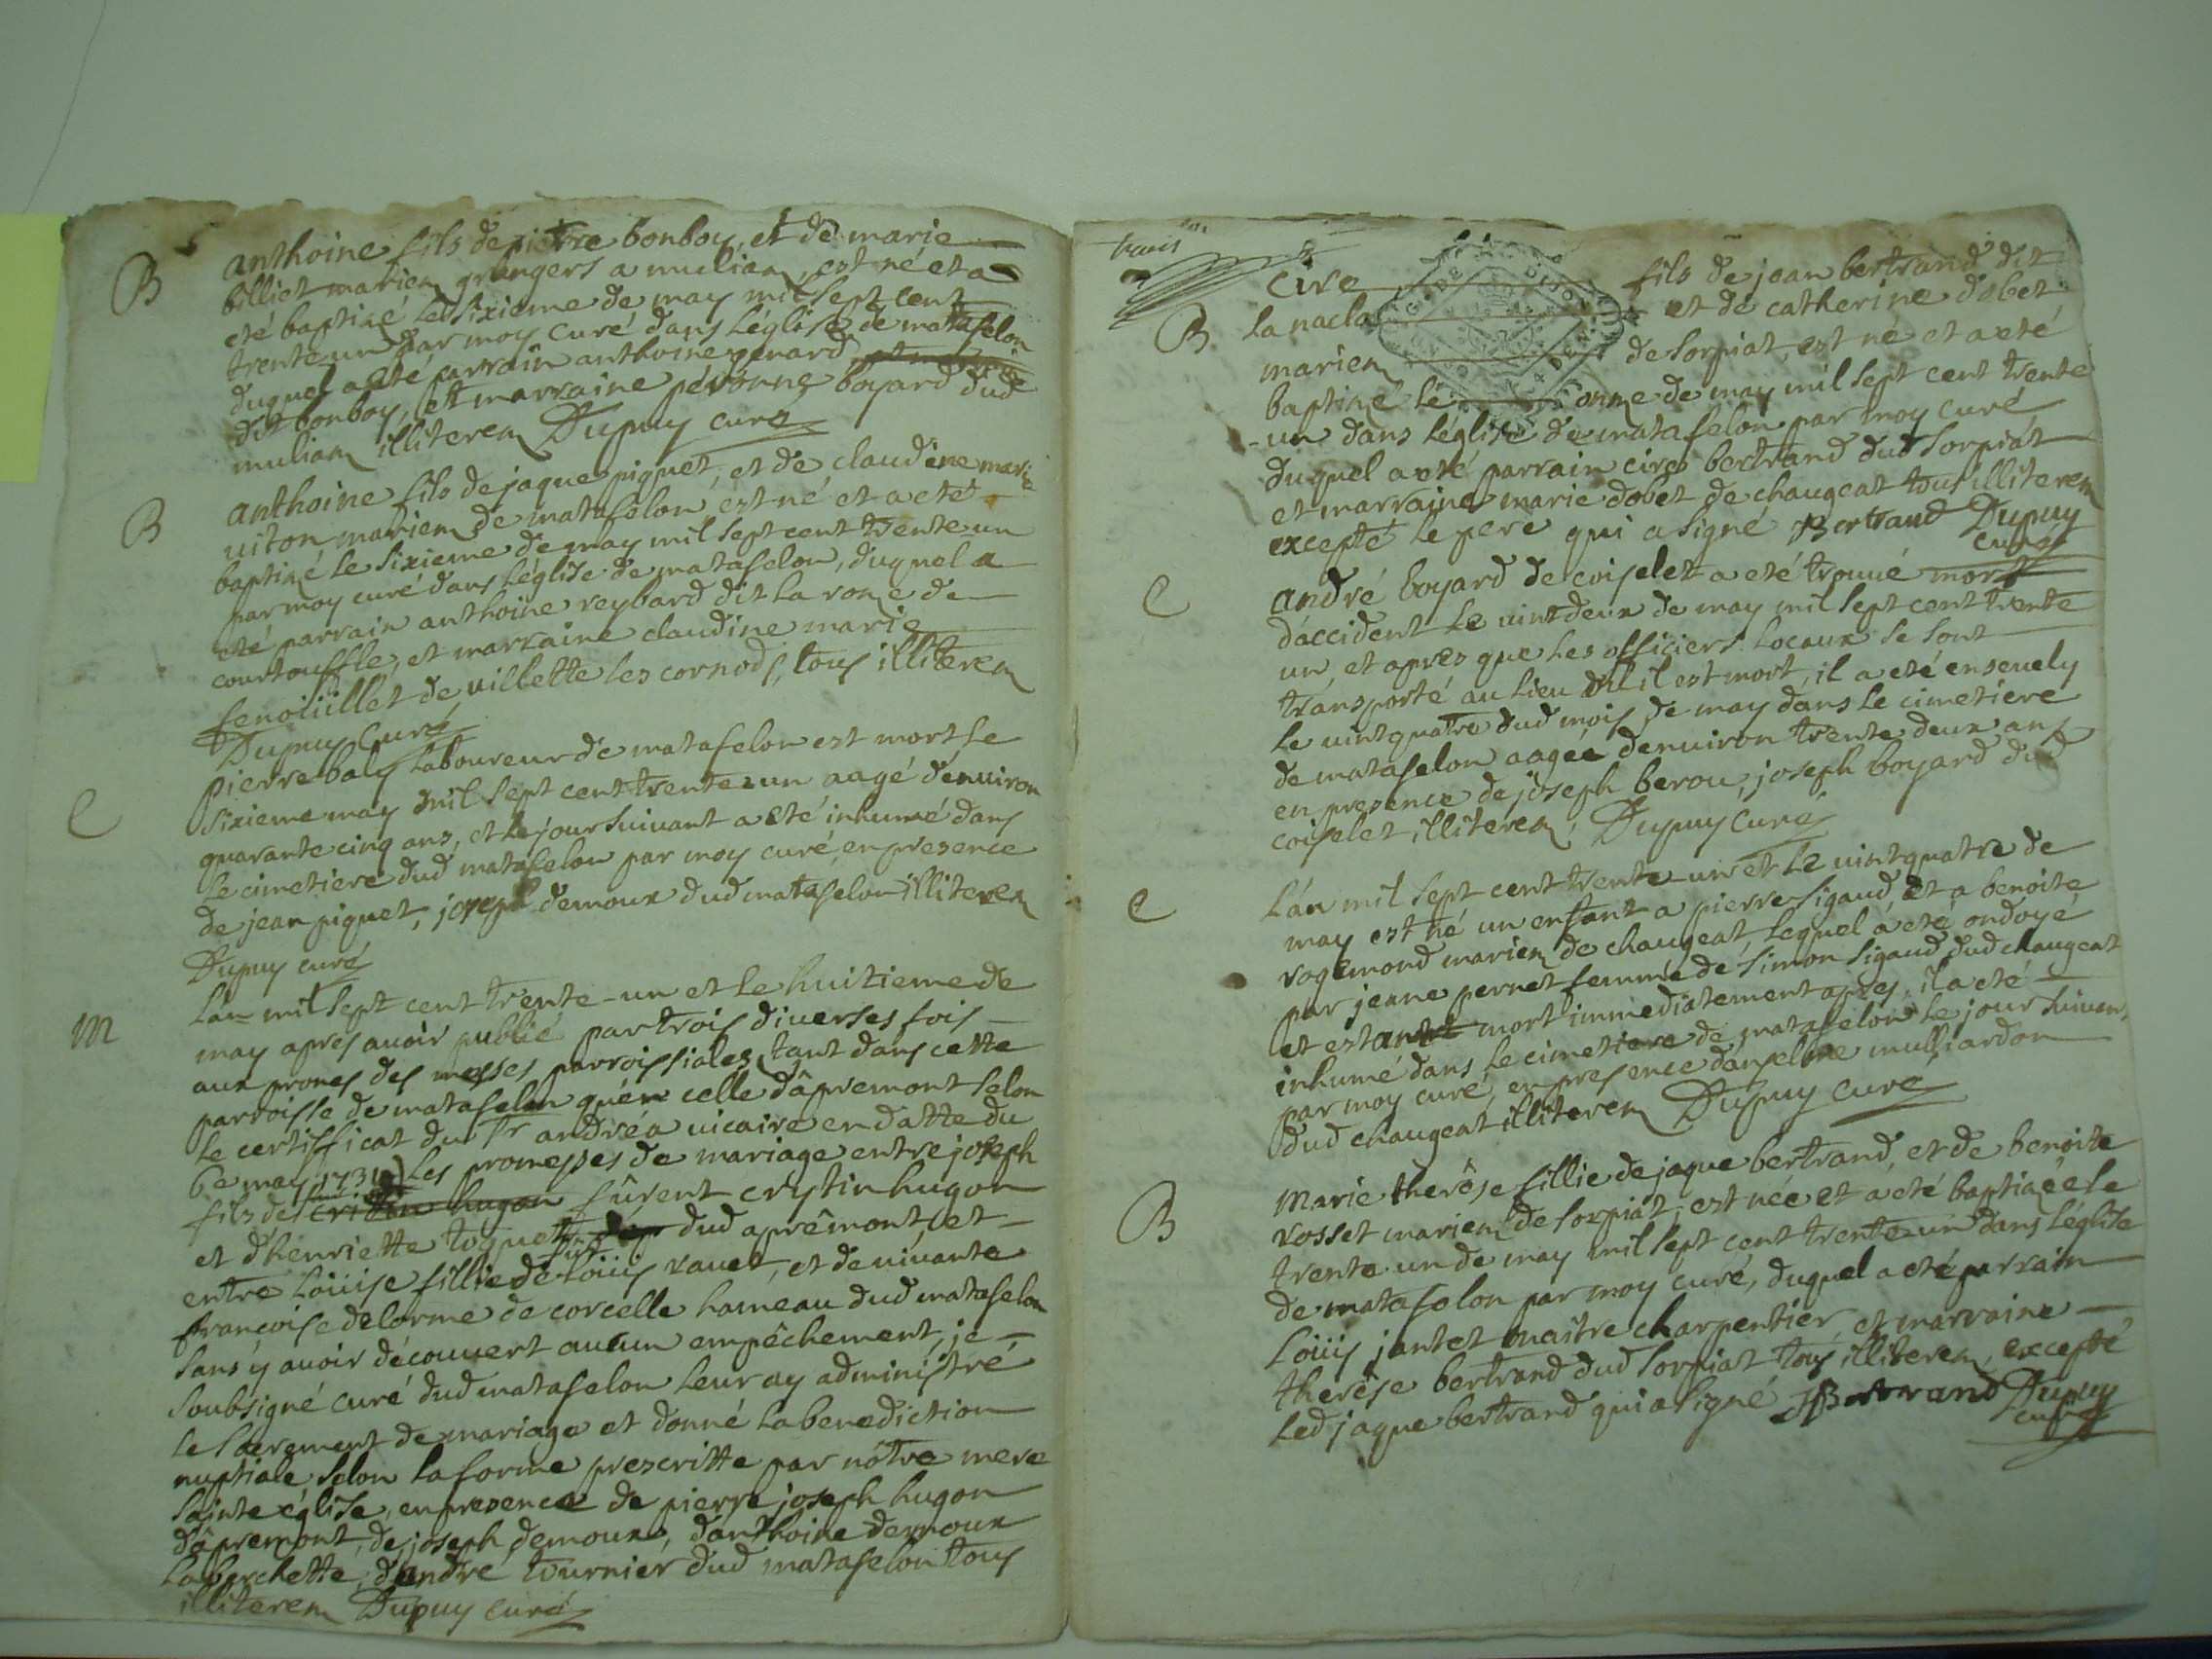 B
anthoine fils de pierre bonboy, et de marie
billiet mariem grangers a muliam, est né et a
eté baptizé le sixieme de may mil sept cent
trente un par moy curé dans léglise de matafelon
duquel a eté parrain anthoine genard
dit bonboy, et marraine péronne boyard dud
muliam illiterem Dupuy curé
B
anthoine fils de jaque piquet, et de claudine marie
uiton mariem de matafelon est né et a eté
baptizé le sixieme de may mil sept cent trente-un
par moy curé dans léglise de matafelon, duquel a
eté parrain anthoine reybard dit la rose de
courtouffle, et marraine claudine marie
fenoüillet de uillette les cornods, tous illiterem
Dupuy Curé
C
pierre baly laboureur de matafelon est mort le
sixieme may mil sept cent trente-un aagé denuiron
quarante cinq ans, et le jour suiuant a eté inhumé dans
le cimetiere dud matafelon par moy curé, en presence
de jean piquet, joseph demoux dud matafelon illiterem
Dupuy curé
M
Lán mil sept cent trente-un et le huitieme de
may apres auoir publié par trois diuerses fois
aux prones des messes parroissiales tant dans cette
parroisse de matafelon quén celle dâpremont selon
le certifficat du Sr andréa uicaire en datte du
6e may 1731 les promesses de mariage entre joseph
fils de cristin hugon fûrent crytin hugon
et dhenriette toquet dud aprêmont, et
entre Loüise fillie de Loüis rauet, et de uiuante
francoise delorme de corcelle hameau dud matafelon
sans y auoir découuert aucun empêchement, je
soubsigné curé dud matafelon leur ay administré
le sacrement de mariage et donné la benediction
nuptiale, selon la forme prescritte par nôtre mere
sainte eglise, en presence de pierre joseph hugon
dâpremont, de joseph demoux, danthoine demoux
laberchette, dandré tournier dud matafelon tous
illiterem Dupuy curé
trois
B
cire fils de jean bertrand dit
la nacla et de catherine dobet
mariem de sorpiat, est né et a eté
baptizé le onze de may mil sept cent trente
-un dans léglise de matafelon par moy curé
duquel a eté parrain cire bertrand dud sorpiat
et marraine marie dobet de chaugeat tous illiterem
excepté le pere qui a signé Bertrand Dupuy
curé
C
andré boyard de coiselet a eté trouué mort
dáccident le uint deux de may mil sept cent trente
un, et apres que les officiers locaux se sont
transporté au lieu oú il est mort, il a eté enseuely
le uint quatre dud mois de may dans le cimetiere
de matafelon aagée denuiron trente deux ans
en presence de joseph berou, joseph boyard dud
coiselet illiterem, Dupuy Curé
C
Lán mil sept cent trente-un et le uint quatre de
may est né un enfant a pierre sigaud, et a benoite
rogemond mariem de chaugeat, lequel a eté ondoyé
par jeane pernet femme de simon sigaud dud chaugeat
et estant mort immediatement apres, il a eté
inhumé dans le cimetiere de matafelon le jour suiuant
par moy curé, en presence danselme mulliardon
dud chaugeat illiterem Dupuy curé
B
Marie therêse fillie de jaque bertrand, et de benoite
rosset mariem de sorpiat, est née et a eté baptizée le
trente un de may mil sept cent trente-un dans léglise
de matafelon par moy curé, duquel a eté parrain
Loüis jantet maître charpentier, et marraine
therêse bertrand dud sorpiat tous illiterem, excepté
led jaque bertrand qui a signé JBertrand Dupuy
curé